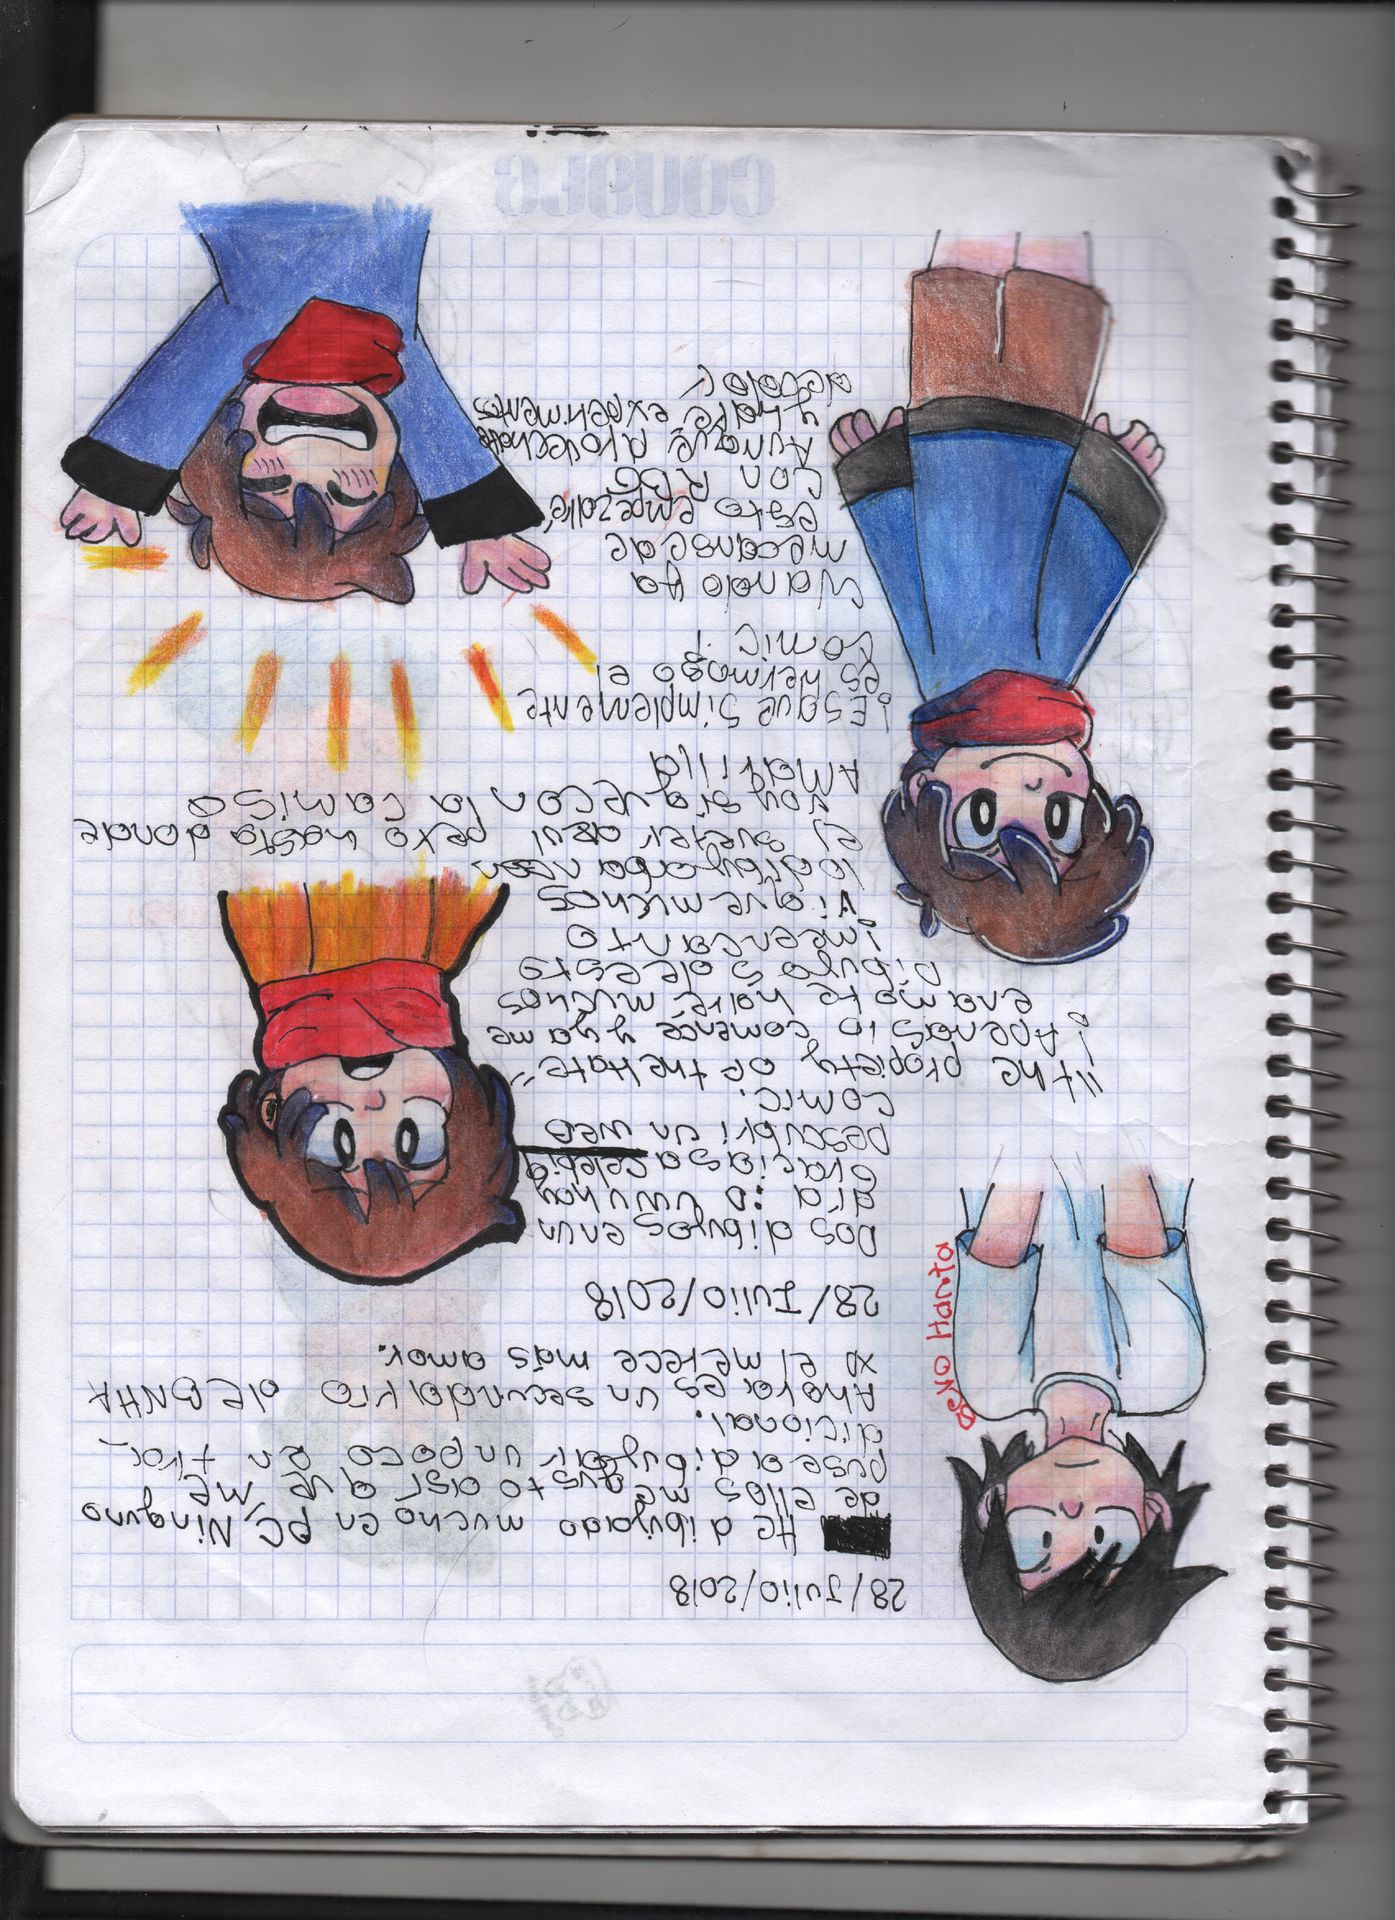 28/Julio/2018
HE dibujado mucho en PC, Ninguno
de ellos me gusto asi que me
puse a dibujar un poco en trac-
dicional.
Ahora es un secundario de BNHA
xD el merece más amor.
@exo Hanta
28/Julio/2018
Dos dibujos en un
día :D uwu hay
gracias a celebig
Descubri un web
comic.
"the propiety of the Hate"
¡Apenas lo comencé y ya me
enamoté haré muchos
Dibujos de esto
¡meencanto
Vi que muchos
lo dibujaba
el sueter azul pero hasta donde
voy sigue con la camisa
Amarilla
¡Esque simplemente
es hermoso el
comic!
Cuando ya
me canse de
esto empezaré
con RBG
Aunque aprovechare
y hare experimentos